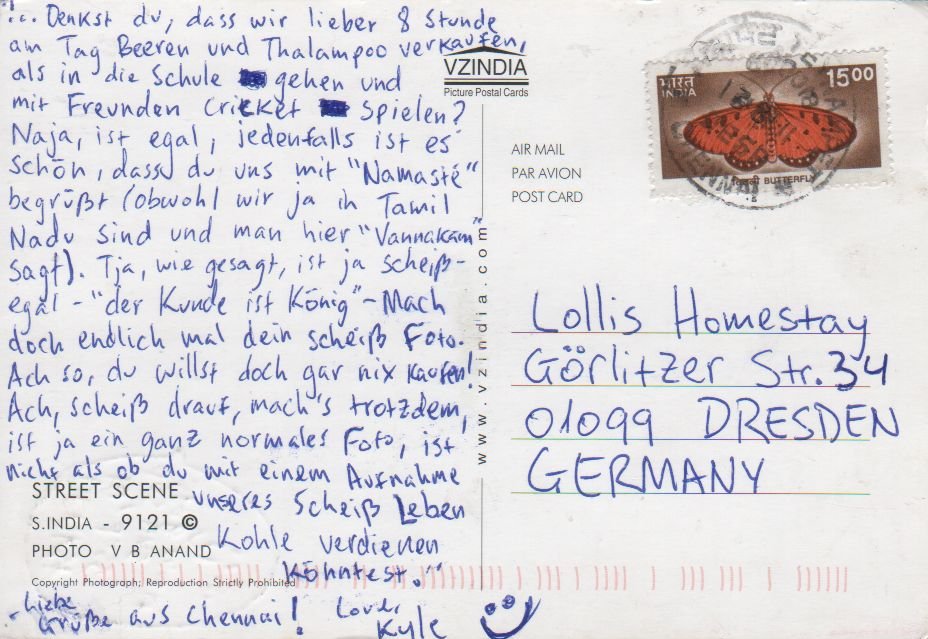 "... Denkst du, dass wir lieber 8 Stunde
am Tag Beeren und Thalampoo verkaufen,
als in die Schule gehen und
mit Freunden Cricket Spielen?
Naja, ist egal, jedenfalls ist es
schön, dass du uns mit "Namasté"
begrüßt (obwohl wir ja in Tamil
Nadu sind und man hier "Vannakam"
sagt). Tja, wie gesagt, ist ja scheiß-
egal - "der Kunde ist König" - Mach
doch endlich mal dein scheiß Foto.
Ach so, du willst doch gar nix kaufen!
Ach, scheiß drauf, mach's trotzdem,
ist ja ein ganz normales Foto, ist
nicht als ob du mit einem Aufnahme
unseres Scheiß Leben
Kohle verdienen
könntest."
- Liebe
Grüße aus Chennai! Love,
Kyle
STREET SCENE
S.INDIA - 9121 ©
PHOTO V B ANAND
Copyright Photograph; Reproduction Strictly Prohibited
VZINDIA
Picture Postal Cards
www.vzindia.com
AIR MAIL
PAR AVION
POST CARD
भारत
INDIA
1500
तितली BUTTERFLY
CHENNAI
Lollis Homestay
Görlitzer Str. 34
01099 DRESDEN
GERMANY